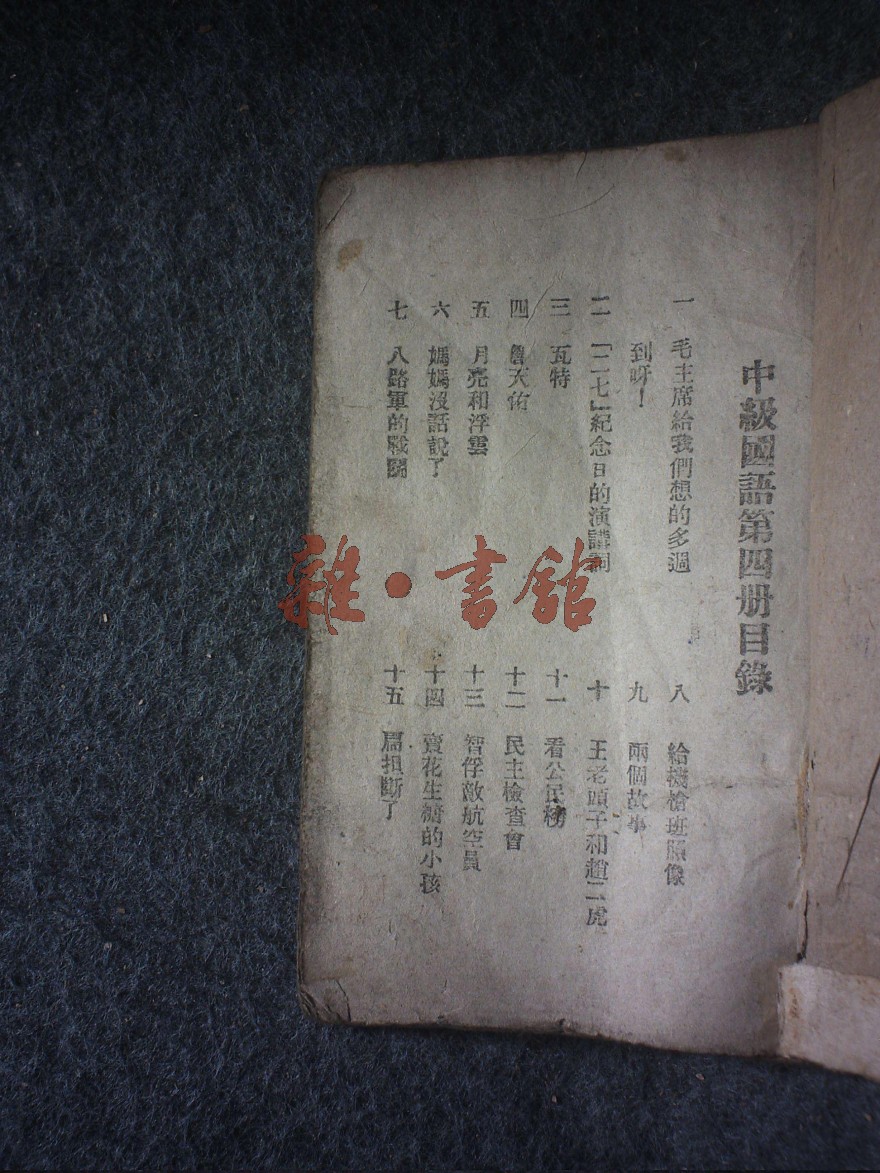 中級國語第四册目錄
一 毛主席給我們想的多過
到呀！
二 「二七」紀念日的演講詞
三 瓦特
四 詹天佑
五 月亮和浮雲
六 媽媽沒話說了
七 八路軍的戰鬭
八 給機槍班照像
九 兩個故事
十 王老頭子和趙二虎
十一 看公民榜
十二 民主檢查會
十三 智俘敵航空員
十四 賣花生糖的小孩
十五 扁担斷了
雜·書館